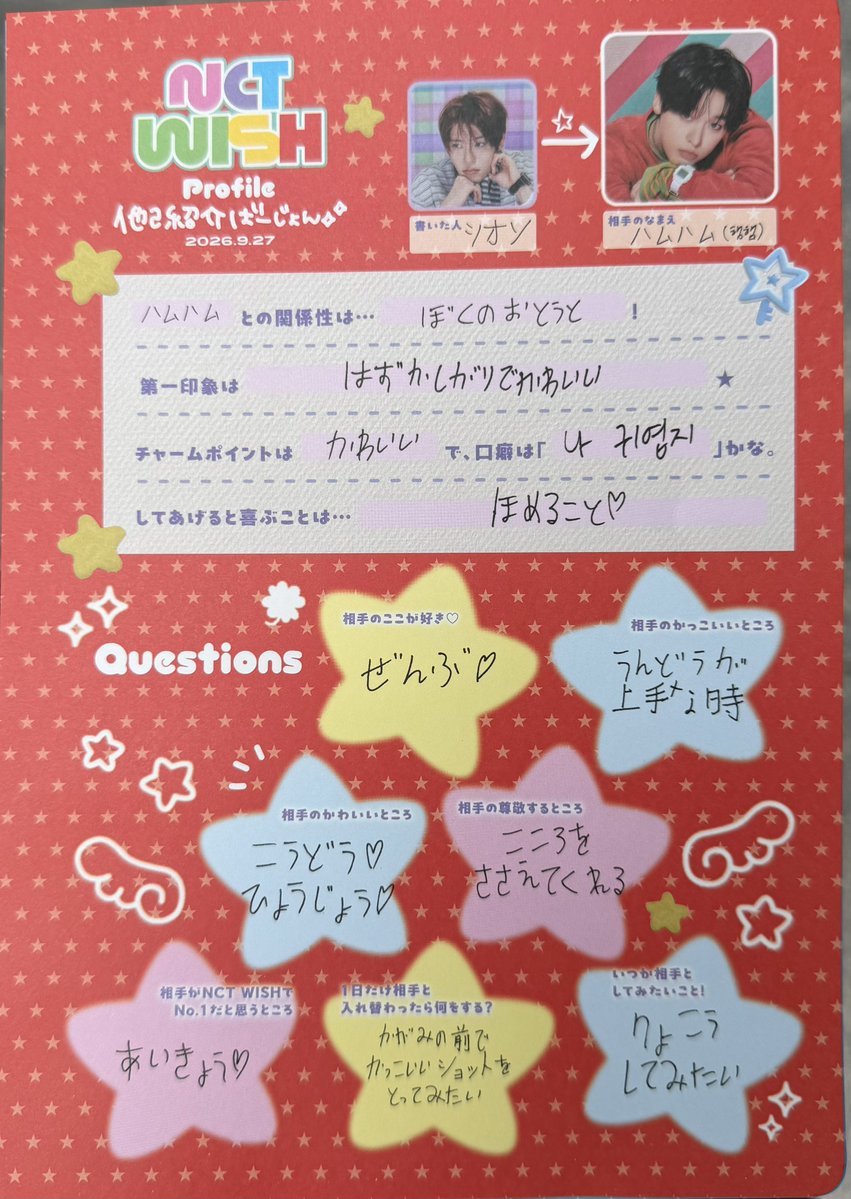 NCT
WISH
Profile
他己紹介ばーじょん
2026.9.27
書いた人 シオン
相手のなまえ
ハムハム(햄햄)
ハムハム との関係性は… ぼくのおとうと !
第一印象は はずかしがりでかわいい ★
チャームポイントは かわいい で、口癖は「 나 귀엽지 」かな。
してあげると喜ぶことは… ほめること♡
Questions
相手のここが好き♡
ぜんぶ♡
相手のかっこいいところ
うんどうが
上手な時
相手のかわいいところ
こうどう♡
ひょうじょう♡
相手の尊敬するところ
こころを
ささえてくれる
相手がNCT WISHで
No.1だと思うところ
あいきょう♡
1日だけ相手と
入れ替わったら何をする?
かがみの前で
かっこいいショットを
とってみたい
いつか相手と
してみたいこと!
りょこう
してみたい